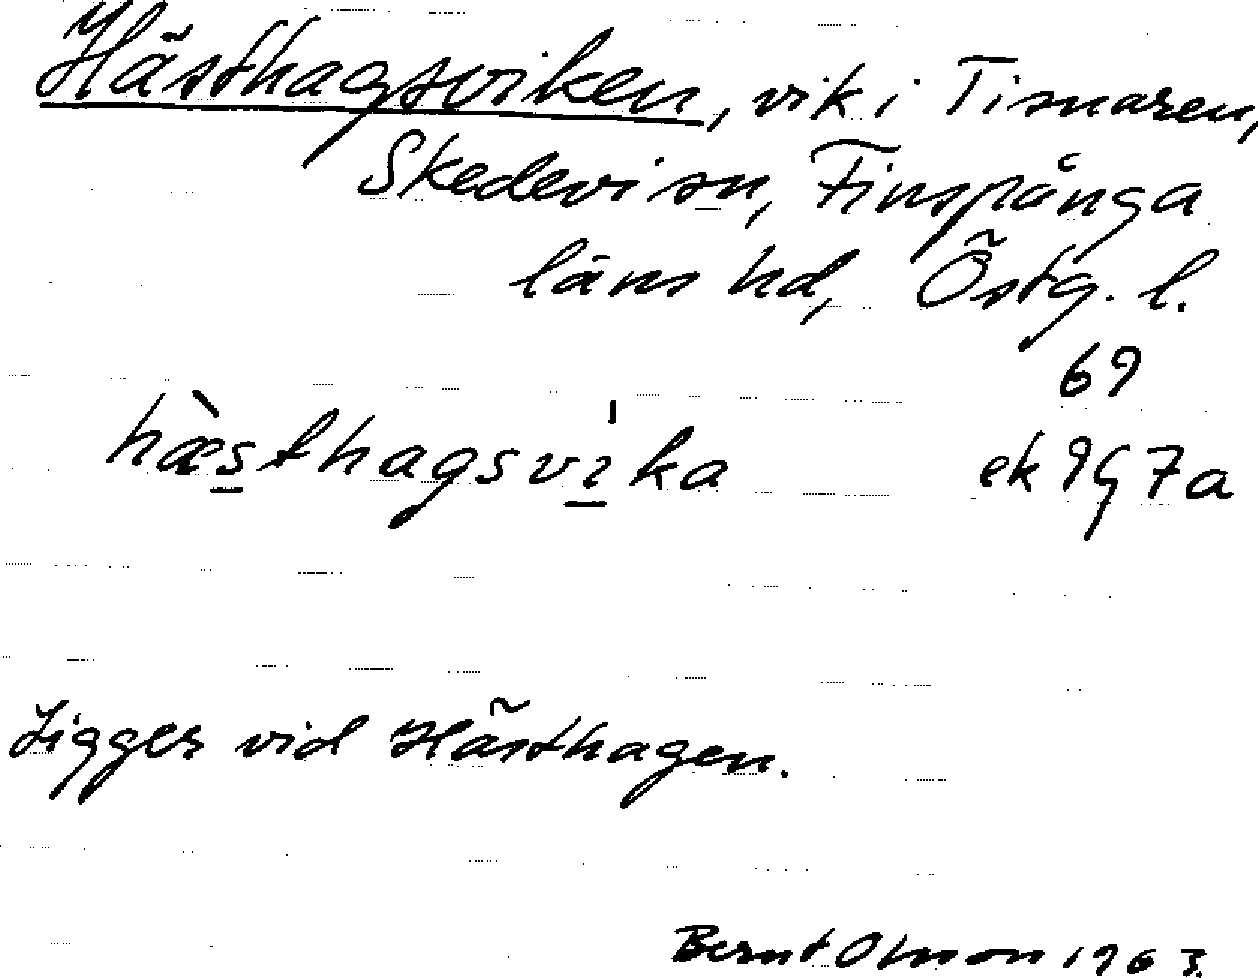 Hästhagsviken, vik i Tisnaren,
Skedevi sn, Finspånga
läns hd, Östg. l.
69
hæ̀sthagsvi̍ka ek 9G 7a
Ligger vid Hästhagen.
Bernt Olsson 1963.